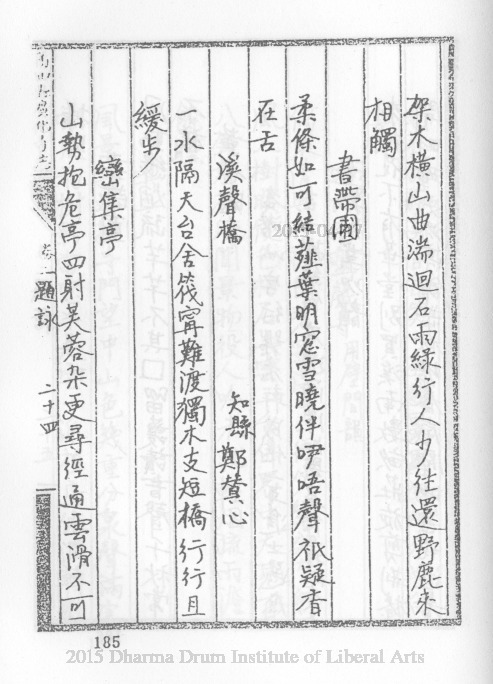 架木橫山曲湍迴石雨綠行人少往還野鹿来
相觸
書帶園
柔條如可結薤葉明窓雪曉伴咿唔聲祇疑香
在舌
溪聲橋 知縣鄭賛心
一水隔天台舍筏寗難渡獨木支短橋行行且
緩步
巒集亭
山勢抱危亭四射芙蓉朶更尋經通雲滑不可
卷一 題詠 二十四
185
2015 Dharma Drum Institute of Liberal Arts